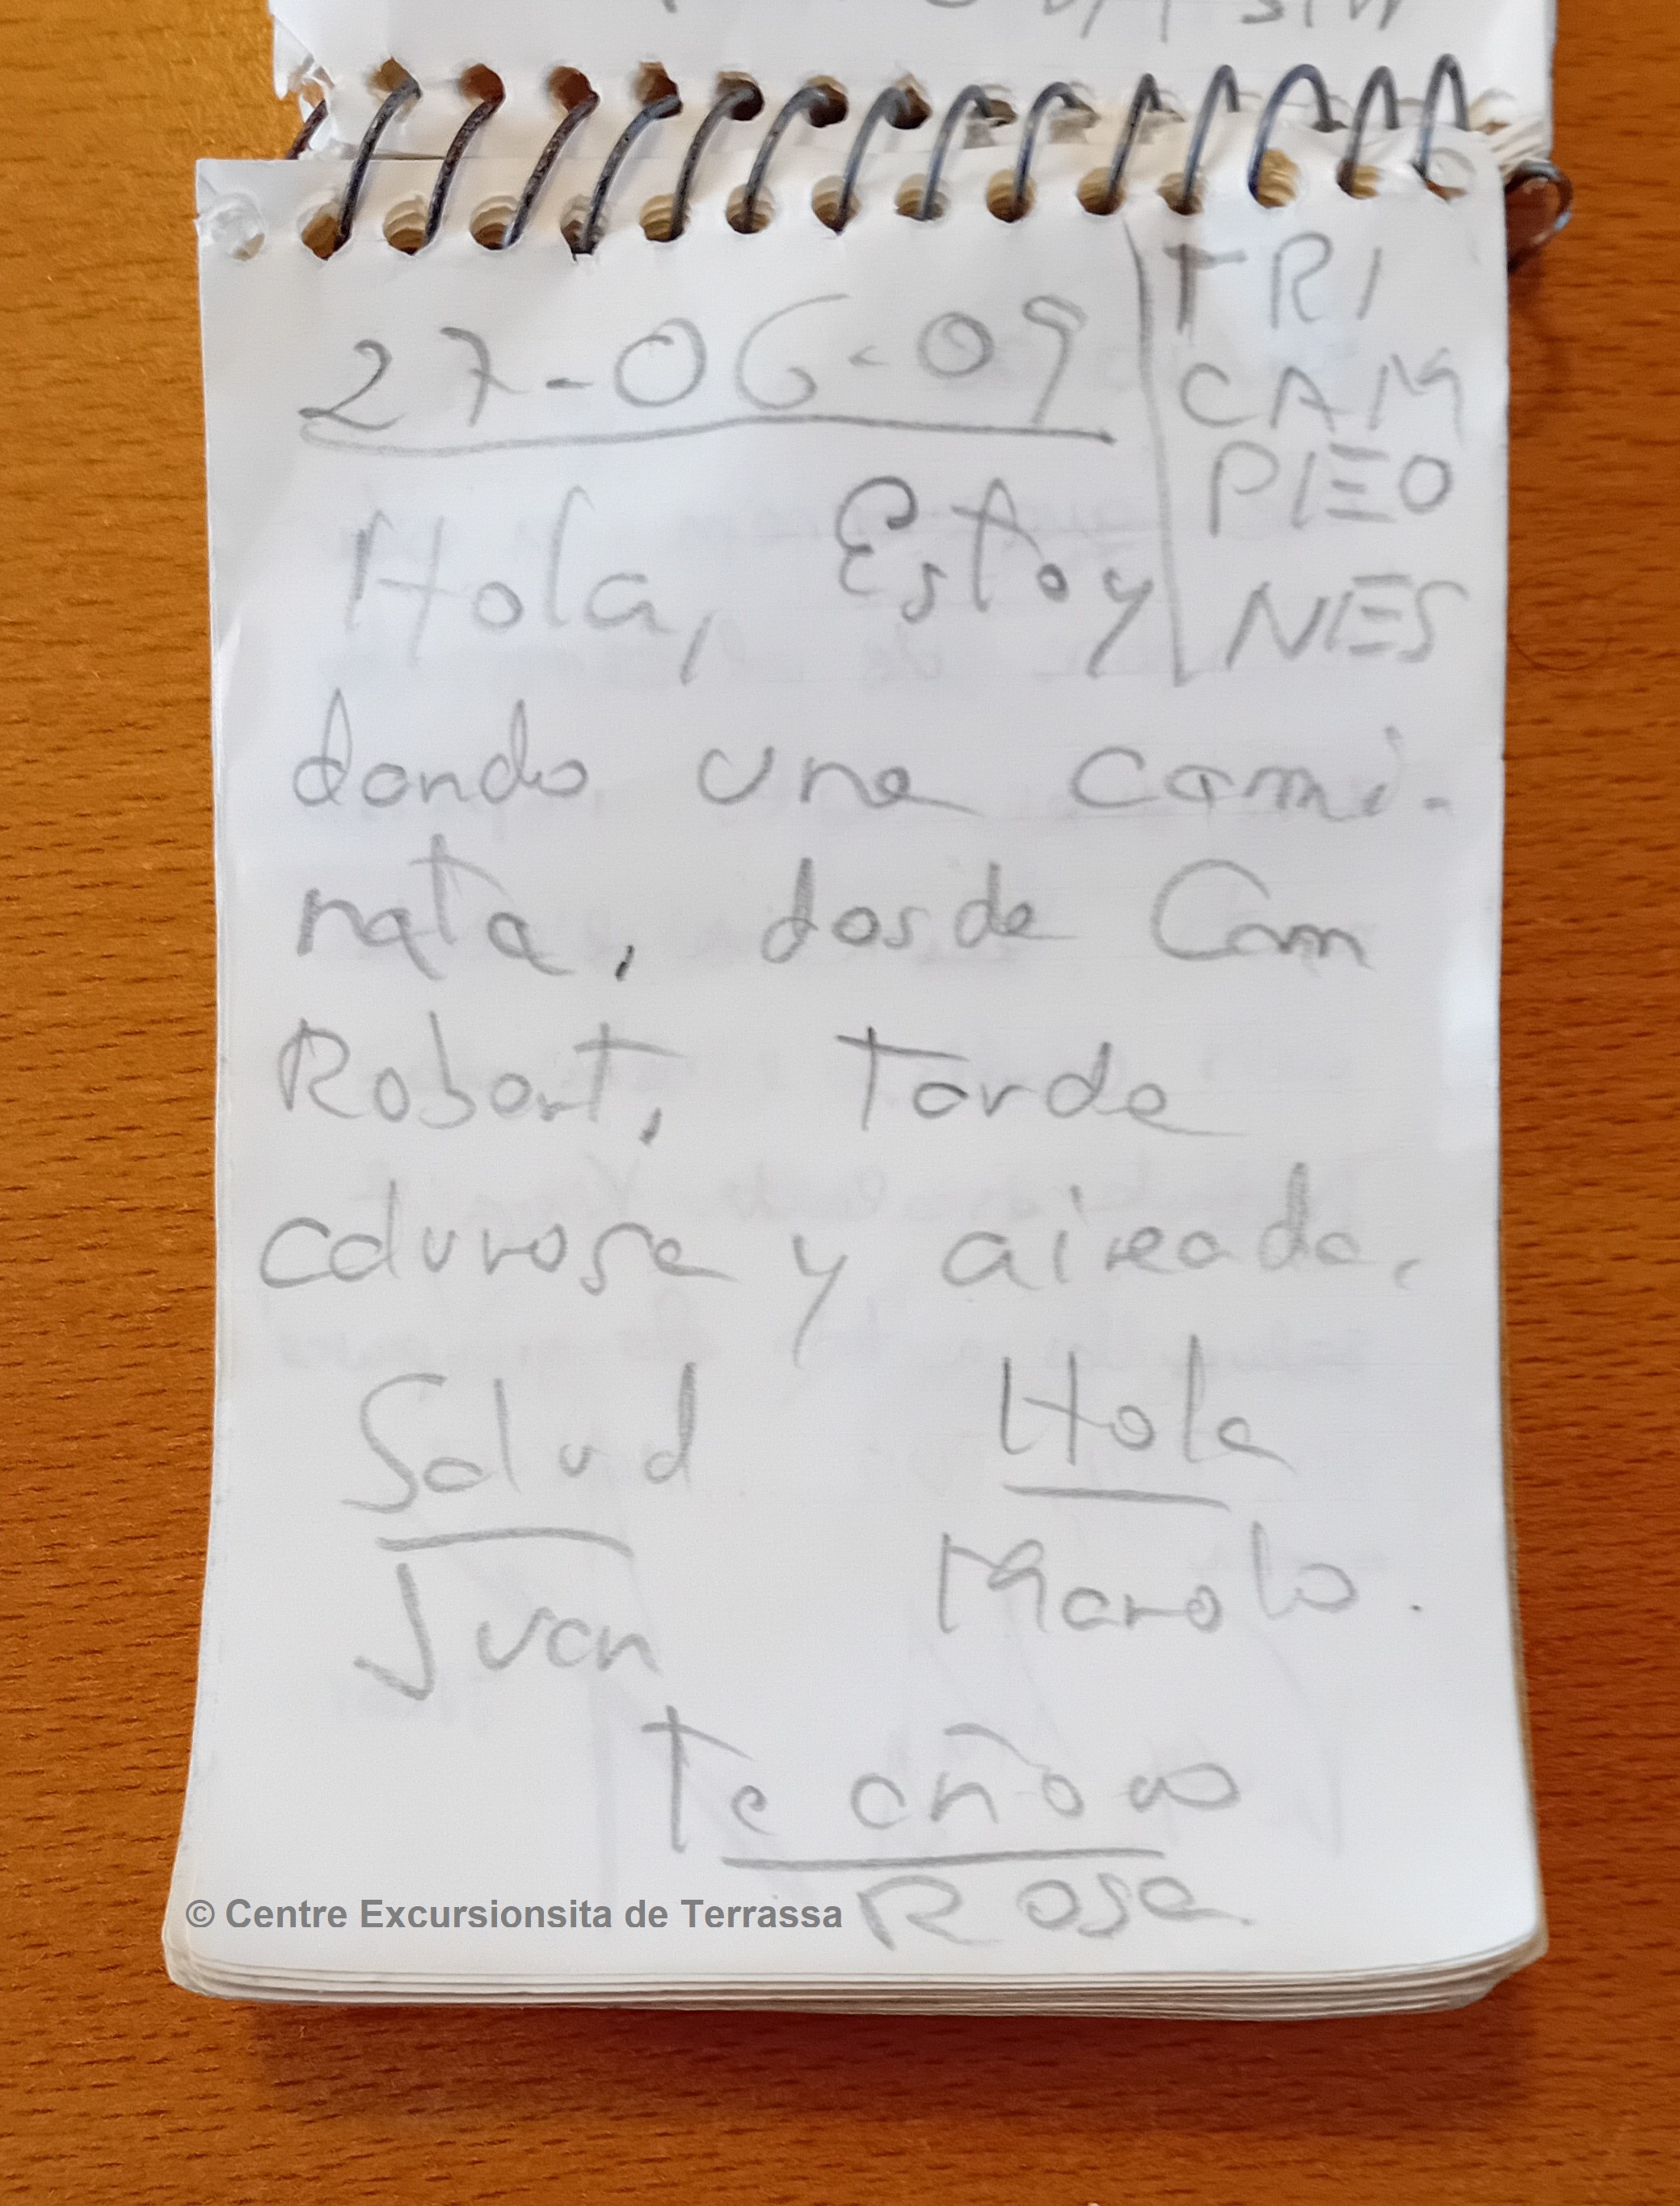 27-06-09
TRI
CAM
PIEO
NES
Hola, Estoy
dando una cami-
nata, desde Cam
Robert, Tarde
calurosa y aireada,
Salud
Juan
Hola
Manolo.
Te añoro
Rosa
© Centre Excursionsita de Terrassa